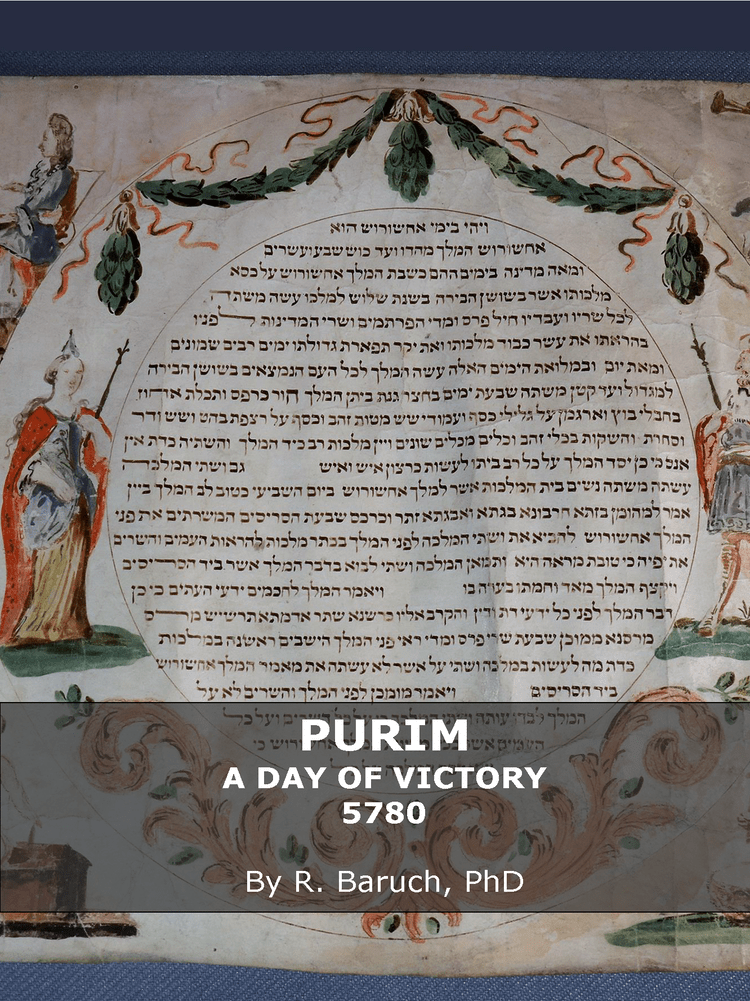 ויהי בימי אחשורוש הוא
אחשורוש המלך מהדו ועד כוש שבע ועשרים
ומאה מדינה בימים ההם כשבת המלך אחשורוש על כסא
מלכותו אשר בשושן הבירה בשנת שלוש למלכו עשה משתה
לכל שריו ועבדיו חיל פרס ומדי הפרתמים ושרי המדינות לפניו
בהראתו את עשר כבוד מלכותו ואת יקר תפארת גדולתו ימים רבים שמונים
ומאת יום ובמלואת הימים האלה עשה המלך לכל העם הנמצאים בשושן הבירה
למגדול ועד קטן משתה שבעת ימים בחצר גנת ביתן המלך חור כרפס ותכלת אחוז
בחבלי בוץ וארגמן על גלילי כסף ועמודי שש מטות זהב וכסף על רצפת בהט ושש ודר
וסחרת והשקות בכלי זהב וכלים מכלים שונים ויין מלכות רב כיד המלך והשתיה כדת אין
אנס כי כן יסד המלך על כל רב ביתו לעשות כרצון איש ואיש גם ושתי המלכה
עשתה משתה נשים בית המלכות אשר למלך אחשורוש ביום השביעי כטוב לב המלך ביין
אמר למהומן בזתא חרבונא בגתא ואבגתא זתר וכרכס שבעת הסריסים המשרתים את פני
המלך אחשורוש להביא את ושתי המלכה לפני המלך בכתר מלכות להראות העמים והשרים
את יפיה כי טובת מראה היא ותמאן המלכה ושתי לבוא בדבר המלך אשר ביד הסריסים
ויקצף המלך מאד וחמתו בערה בו ויאמר המלך לחכמים ידעי העתים כי כן
דבר המלך לפני כל ידעי דת ודין והקרב אליו כרשנא שתר אדמתא תרשיש מרס
מרסנא ממוכן שבעת שרי פרס ומדי ראי פני המלך הישבים ראשנה במלכות
כדת מה לעשות במלכה ושתי על אשר לא עשתה את מאמר המלך אחשורוש
ביד הסריסים ויאמר מומכן לפני המלך והשרים לא על
המלך לבדו עותה ושתי המלכה כי על כל השרים ועל כל
העמים אשר בכל מדינות המלך אחשורוש כי
PURIM
A DAY OF VICTORY
5780
By R. Baruch, PhD